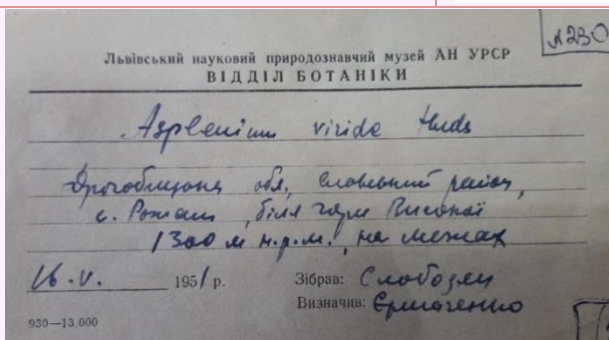 А230
Львівський науковий природознавчий музей АН УРСР
ВІДДІЛ БОТАНІКИ
Asplenium viride Huds
Дрогобицька обл, Славський район,
с. Рожан, біля гори Високої
1300 м н.р.м., на межах
16.V. 1951 р.
Зібрав: Слободян
Визначив: Єрмаченко
930—13.000